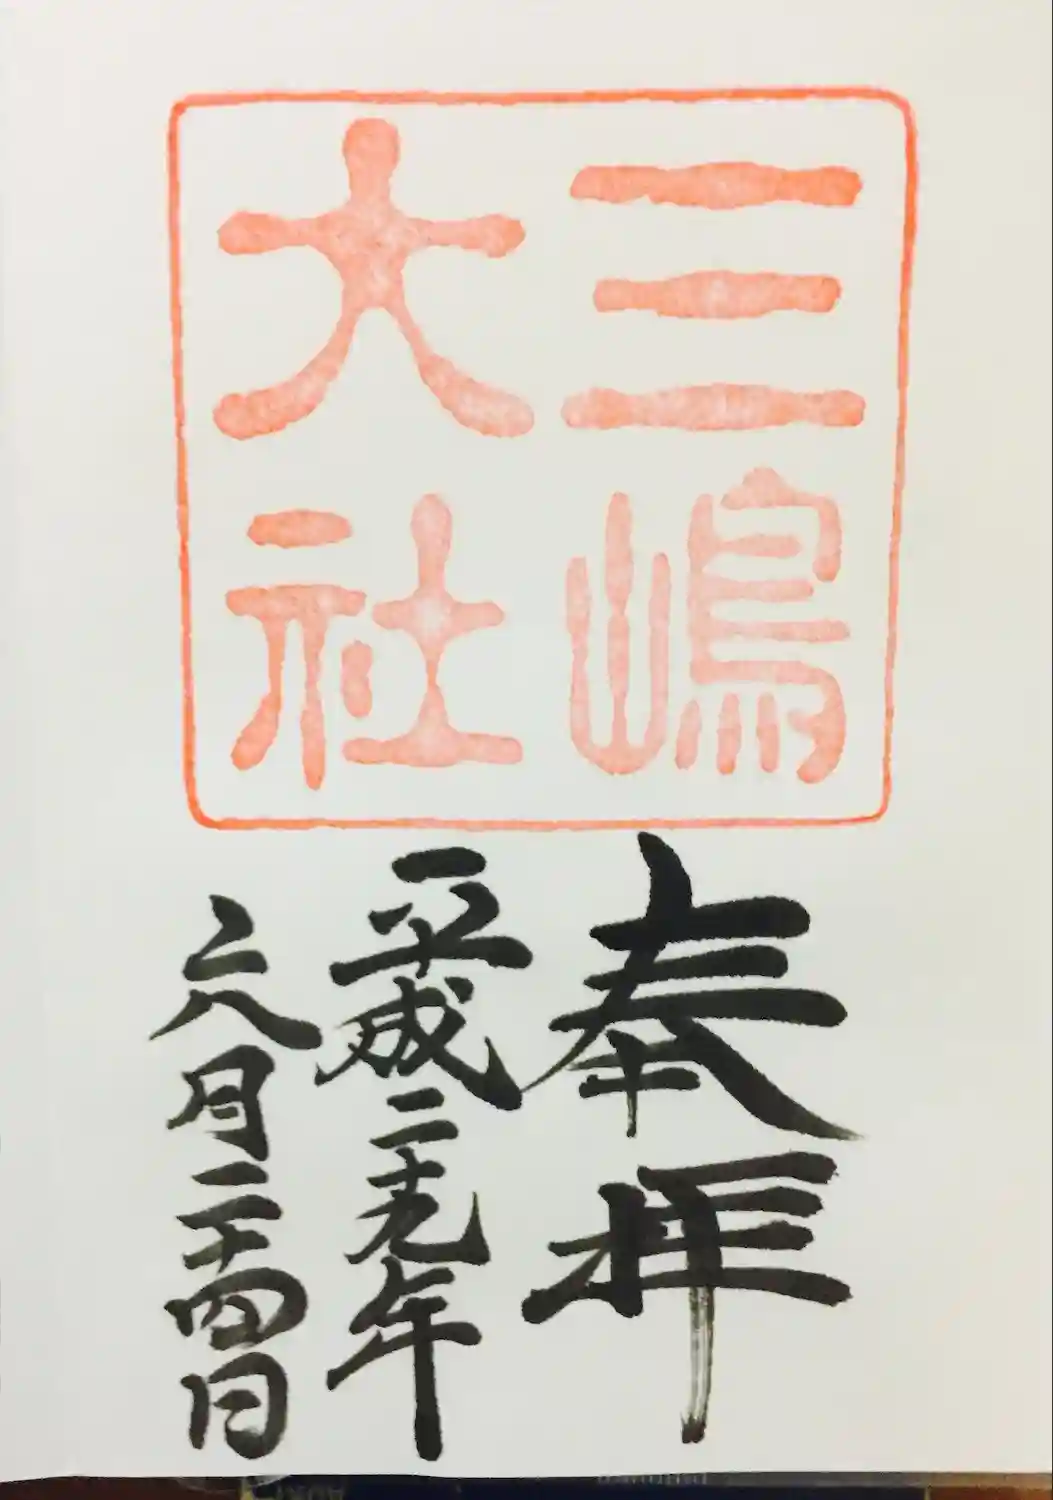 三嶋
大社
奉拝
平成二十九年
六月二十四日